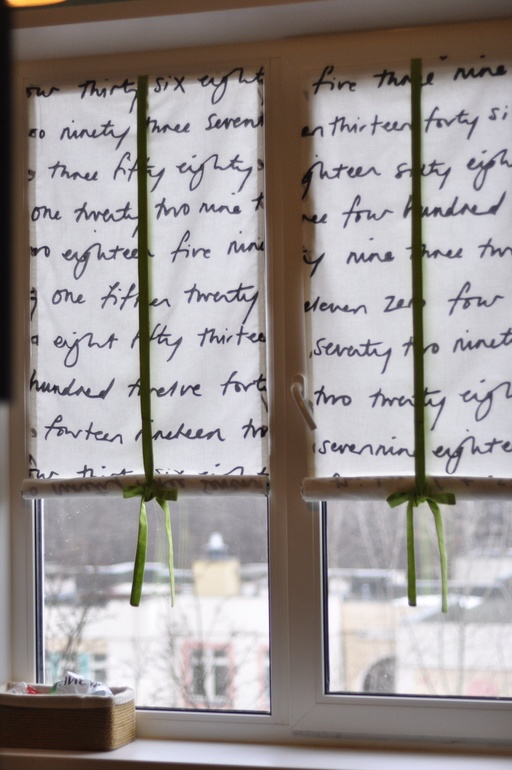 our thirty six eight
ninety three seven
three fifty eighty
one twenty two nine
eighteen five nine
one fifteen twenty
eight fifty thirteen
hundred twelve forty
fourteen nineteen
our thirty six eight
five three nine
thirteen forty
sixty eigh
four hundred
nine three
eleven zero four
seventy two ninet
two twenty eigh
seven nine eightee